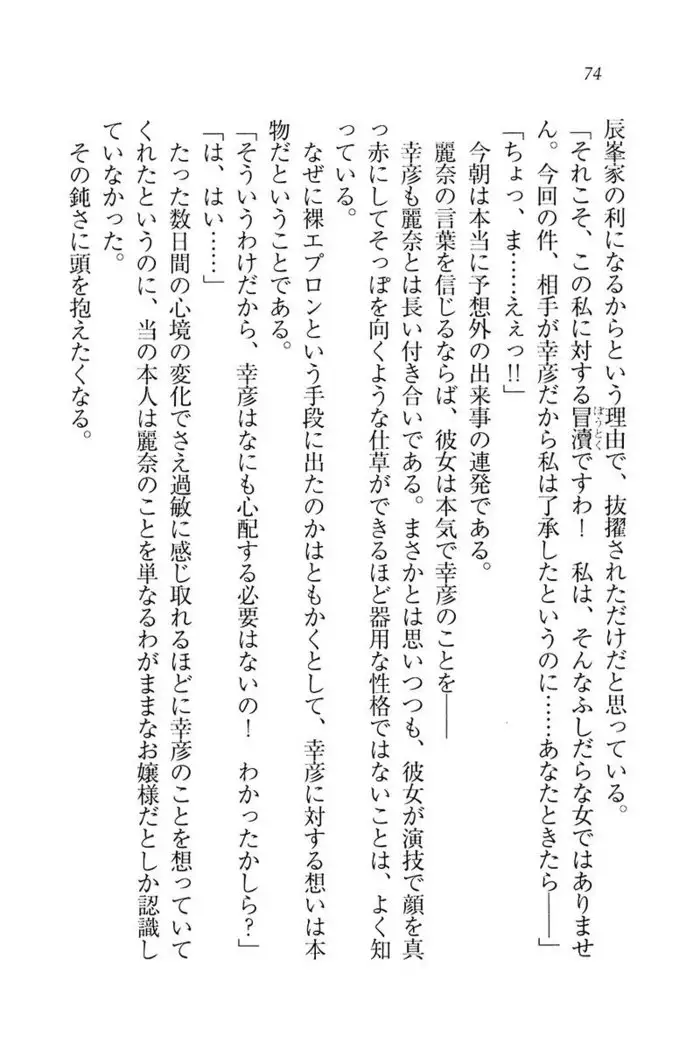 74
辰峯家の利になるからという理由で、抜擢されただけだと思っている。
「それこそ、この私に対する冒瀆ですわ！　私は、そんなふしだらな女ではありませ
ぼうとく
ん。今回の件、相手が幸彦だから私は了承したというのに……あなたときたら――」
「ちょっ、ま……えぇっ!!」
今朝は本当に予想外の出来事の連発である。
麗奈の言葉を信じるならば、彼女は本気で幸彦のことを――
幸彦も麗奈とは長い付き合いである。まさかとは思いつつも、彼女が演技で顔を真
っ赤にしてそっぽを向くような仕草ができるほど器用な性格ではないことは、よく知
っている。
なぜに裸エプロンという手段に出たのかはともかくとして、幸彦に対する想いは本
物だということである。
「そういうわけだから、幸彦はなにも心配する必要はないの！　わかったかしら？」
「は、はい……」
たった数日間の心境の変化でさえ過敏に感じ取れるほどに幸彦のことを想っていて
くれたというのに、当の本人は麗奈のことを単なるわがままなお嬢様だとしか認識し
ていなかった。
その鈍さに頭を抱えたくなる。